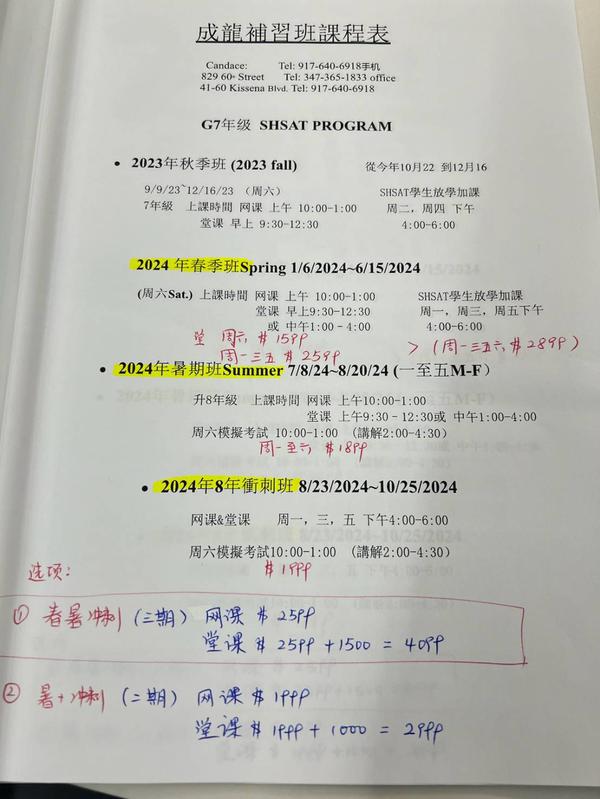 成龍補習班課程表
Candace: Tel: 917-640-6918手机
829 60th Street Tel: 347-365-1833 office
41-60 Kissena Blvd. Tel: 917-640-6918
G7年級 SHSAT PROGRAM
• 2023年秋季班 (2023 fall) 從今年10月22 到12月16
9/9/23~12/16/23 (周六) SHSAT學生放學加課
7年級 上課時間 网课 上午 10:00-1:00 周二, 周四 下午
堂课 早上 9:30-12:30 4:00-6:00
2024 年春季班Spring 1/6/2024~6/15/2024
(周六Sat.) 上課時間 网课 上午 10:00-1:00 SHSAT學生放學加課
堂课 早上9:30-12:30 周一, 周三, 周五下午
或 中午1:00 - 4:00 4:00-6:00
堂 周六 $1599
周一三五 $2599 > (周一三五六 $2899)
• 2024年暑期班Summer 7/8/24~8/20/24 (一至五M-F)
升8年級 上課時間 网课 上午10:00-1:00
堂课 上午9:30 - 12:30或 中午1:00-4:00
周六模擬考試 10:00-1:00 (講解2:00-4:30)
周一至六 $1899
• 2024年8年衝刺班 8/23/2024~10/25/2024
网课&堂课 周一, 三, 五 下午4:00-6:00
周六模擬考試10:00-1:00 (講解2:00-4:30)
$1999
选项:
① 春暑冲刺 (三期) 网课 $2599
堂课 $2599 + 1500 = 4099
② 暑+冲刺 (二期) 网课 $1999
堂课 $1999 + 1000 = 2999